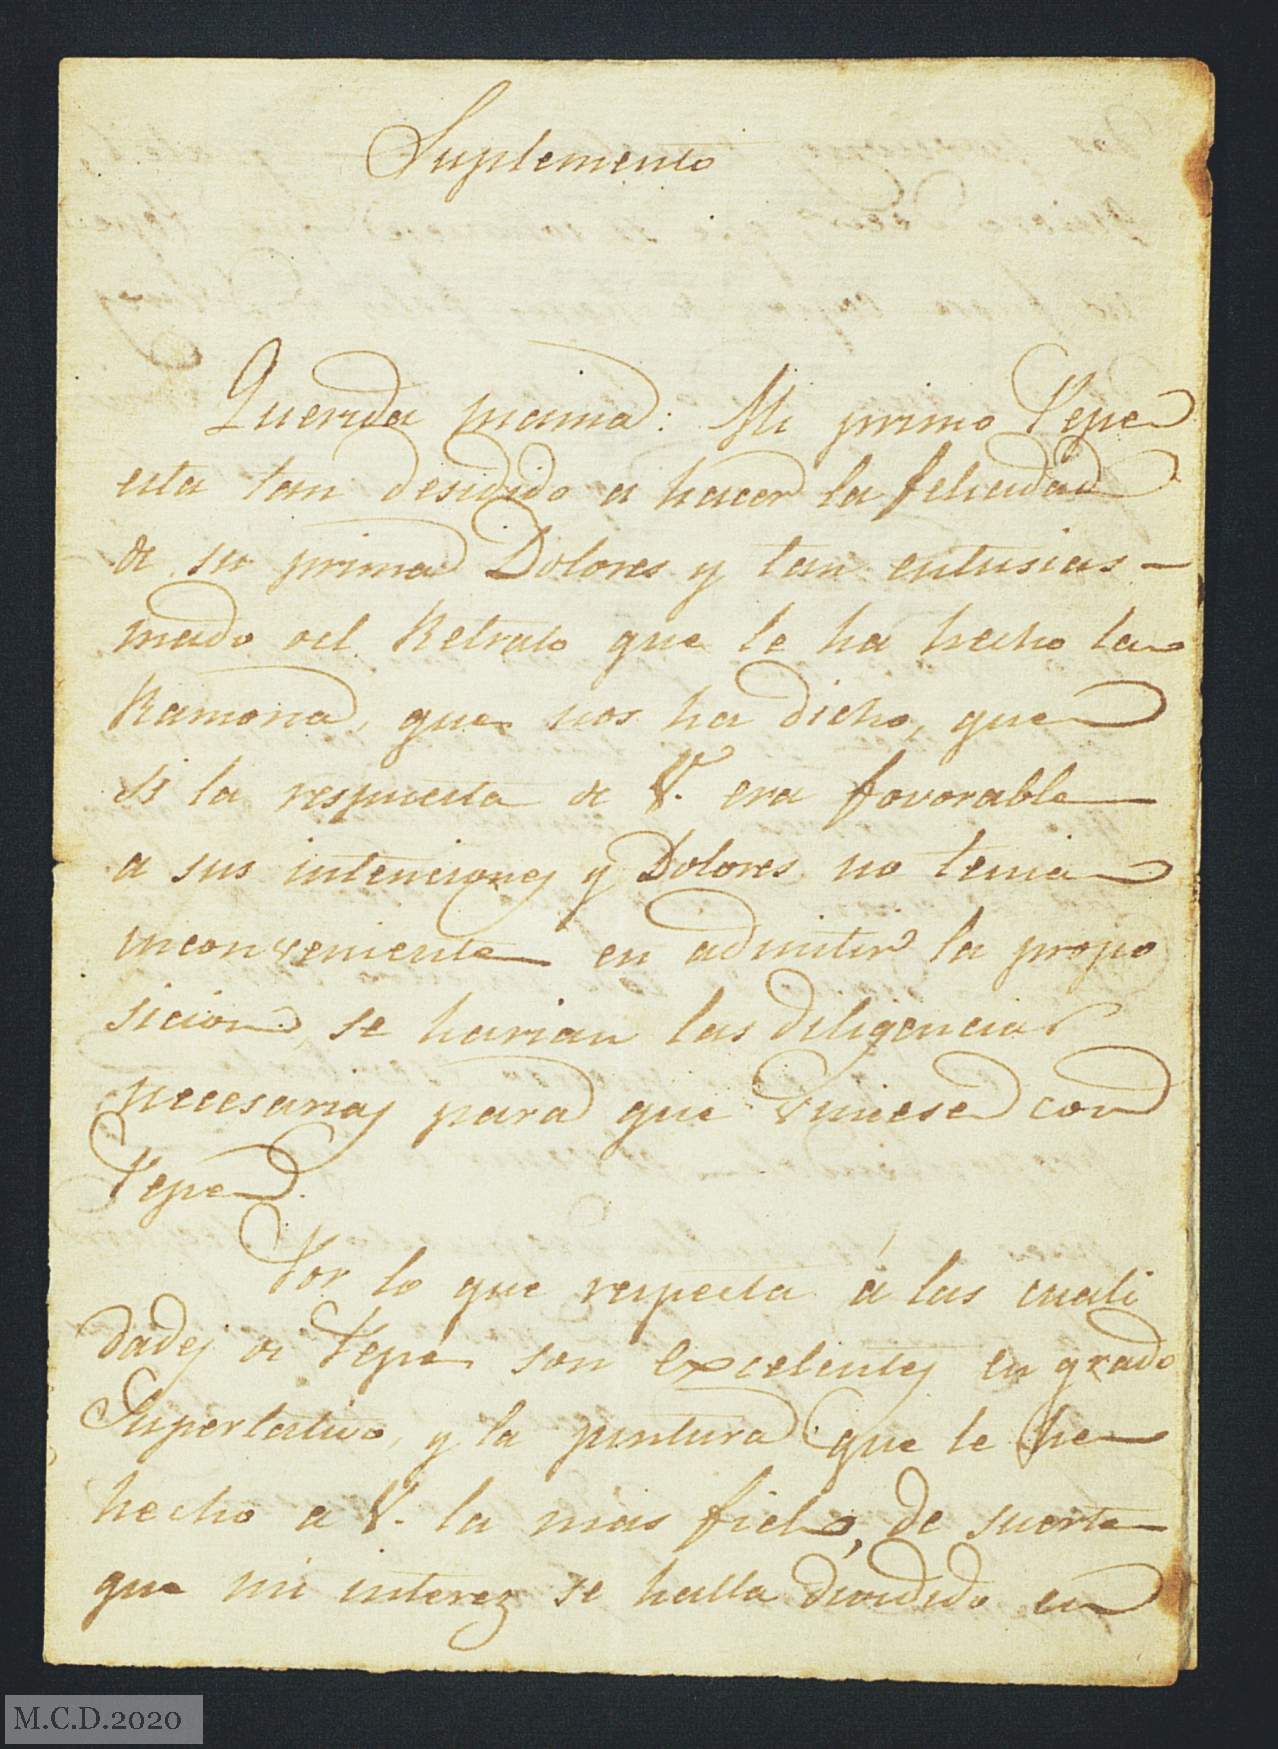 Suplemento
Querida mama: Mi primo Pepe
esta tan desidido a hacer la felicidad
de su prima Dolores y tan entusias-
mado del Retrato que le ha hecho la
Ramona, que nos ha dicho, que
si la respuesta de V. era favorable
a sus intenciones y Dolores no tenia
inconveniente en admitir la propo
sicion, se harian las diligencias
necesarias para que viniese con
Pepe.
Por lo que respecta á las cuali
dades de Pepe son excelentes en grado
Superlativo, y la pintura que le he
hecho a V. la mas fiel, de suerte
que mi interez se halla dividido en
M.C.D.2020